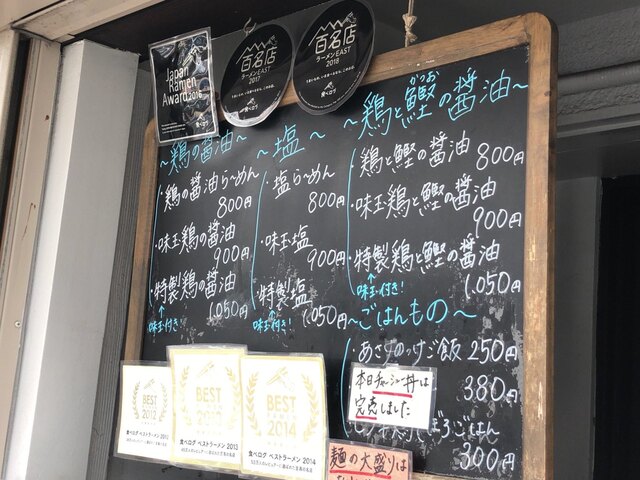 Japan
Ramen
Award2016
百名店
ラーメンEAST
2017
食べログ
百名店
ラーメンEAST
2018
食べログ
~鶏の醤油~
・鶏の醤油らーめん
800円
・味玉鶏の醤油
900円
・特製鶏の醤油
1,050円
味玉付き!
~塩~
・塩らーめん
800円
・味玉塩
900円
・特製塩
1,050円
味玉付き!
~鶏と鰹の醤油~
かつお
・鶏と鰹の醤油
800円
・味玉鶏と鰹の醤油
900円
・特製鶏と鰹の醤油
1,050円
味玉付き!
~ごはんもの~
・あさりのっけご飯 250円
本日チャーシュー丼は
完売しました
380円
ぼろごはん
300円
BEST
2012
食べログ ベストラーメン 2012
BEST
食べログ ベストラーメン 2013
BEST
2014
食べログ ベストラーメン 2014
麺の大盛りは